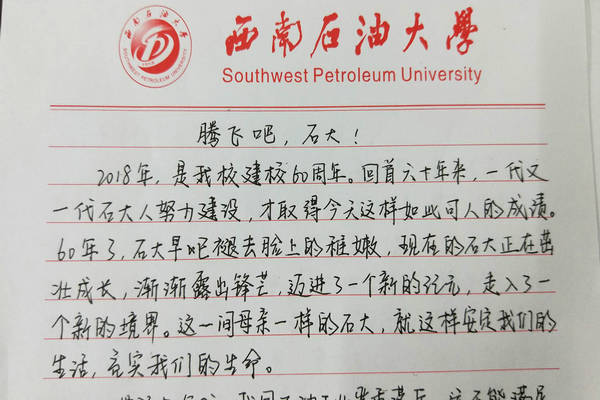 西南石油大学
SOUTHWEST PETROLEUM UNIVERSITY
1958
西南石油大學
Southwest Petroleum University
腾飞吧，石大！
2018年，是我校建校60周年。回首六十年来，一代又
一代石大人努力建设，才取得今天这样如此可人的成绩。
60年了，石大早已褪去脸上的稚嫩，现在的石大正在茁
壮成长，渐渐露出锋芒，迈进了一个新的纪元，走入了一
个新的境界。这一间母亲一样的石大，就这样安定我们的
生活，充实我们的生命。